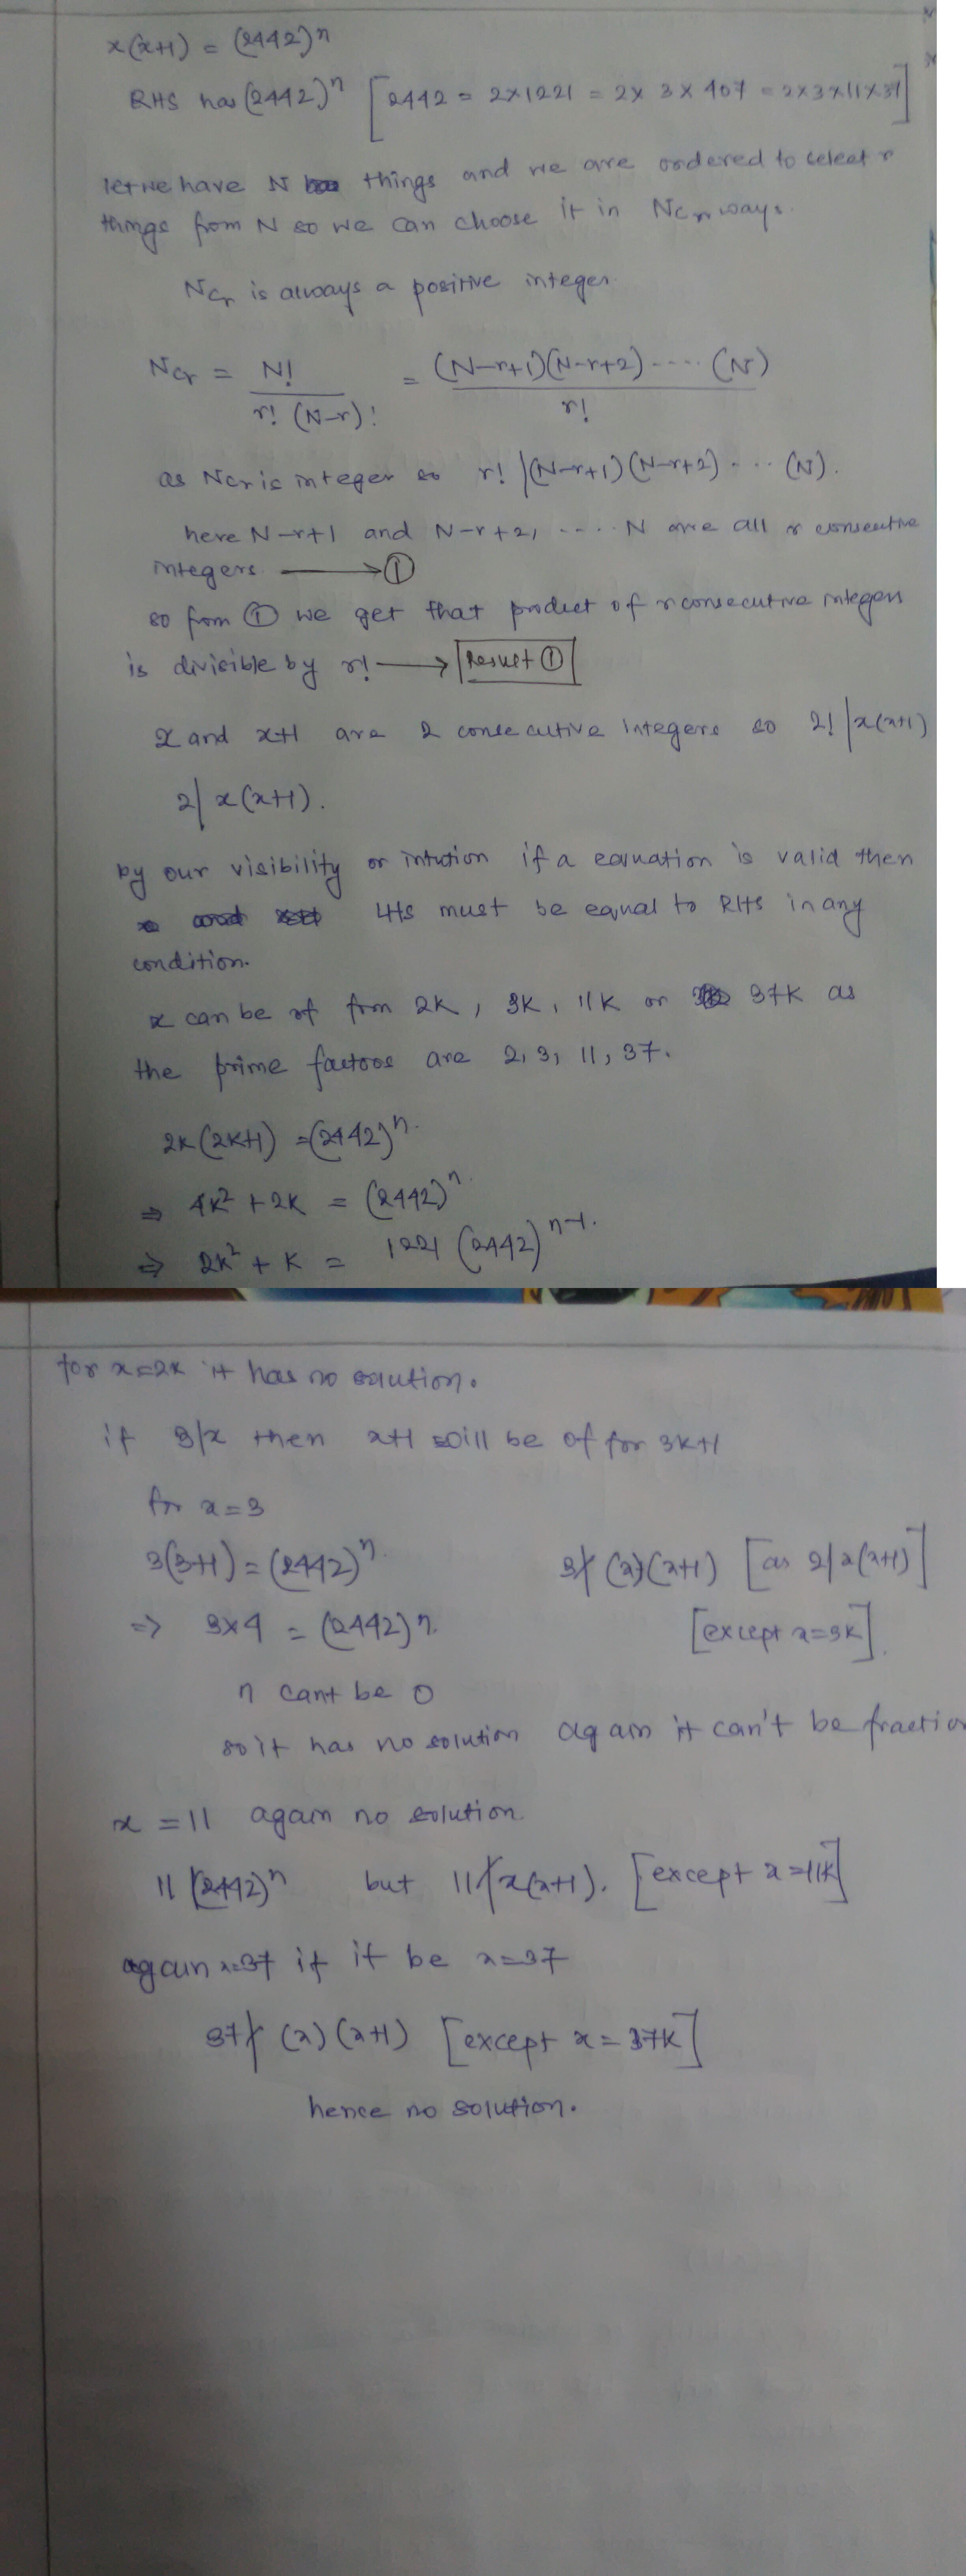 x(x+1) = (2442)^n
RHS has (2442)^n [2442 = 2×1221 = 2×3×407 = 2×3×11×37]
let we have N things and we are ordered to select r
things from N so we can choose it in Ncr ways.
Ncr is always a positive integer.
Ncr = N!/(r! (N-r)!) = (N-r+1)(N-r+2)....(N)/r!
as Ncr is integer so r! |(N-r+1)(N-r+2)....(N).
here N-r+1 and N-r+2, ....N are all r consecutive
integers ⟶ ①
so from ① we get that product of r consecutive integers
is divisible by r! ⟶ Result ①
x and x+1 are 2 consecutive integers so 2! | x(x+1)
2| x(x+1).
by our visibility or intution if a equation is valid then
LHS must be equal to RHS in any
condition.
x can be of from 2K, 3K, 11K or 37K as
the prime factors are 2, 3, 11, 37.
2K(2K+1) = (2442)^n.
⇒ 4K² + 2K = (2442)^n.
⇒ 2K² + K = 1221 (2442)^n-1.
for x=2K it has no solution.
if 3/x then x+1 will be of for 3K+1
for x=3
3(3+1) = (2442)^n. 3∤ (x)(x+1) [as 2/x(x+1)]
⇒ 3×4 = (2442)^n. [except x=3K].
n cant be 0
so it has no solution again it can't be fraction
x = 11 again no solution
11 |(2442)^n but 11∤x(x+1). [except x=11K]
again x=37 if it be x=37
37∤ (x)(x+1) [except x=37K]
hence no solution.